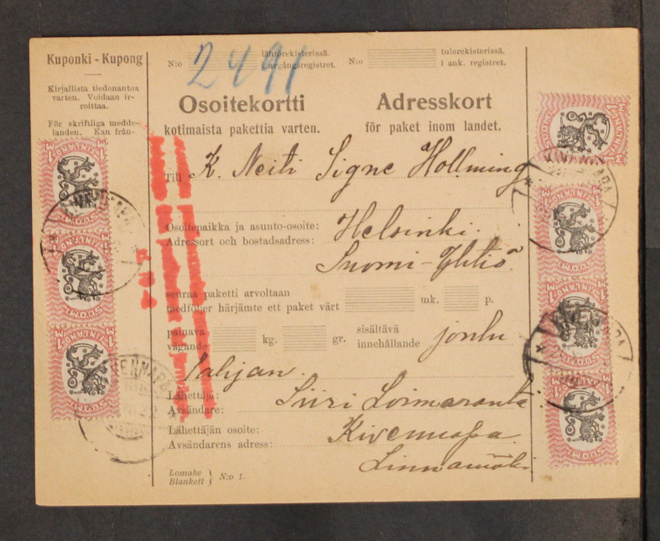 Kuponki - Kupong
Kirjallista tiedonantoa
varten. Voidaan ir-
roittaa.
För skriftliga medde-
landen. Kan från-
N:o 2491 lähtörekisterissä.
i avgångsregistret.
N:o tulorekisterissä.
i ank. registret.
Osoitekortti
kotimaista pakettia varten.
Adresskort
för paket inom landet.
Till K. Neiti Signe Hollming
Osoitepaikka ja asunto-osoite:
Adressort och bostadsadress:
Helsinki.
Suomi-Yhtiö
seuraa paketti arvoltaan
medföljer härjämte ett paket värt mk. p.
painava
vägande kg. gr. sisältävä
innehållande joulu
Lähettäjä:
Avsändare: Siiri Loimaranta
Lähettäjän osoite:
Avsändarens adress:
Kivennapa
Linnamäki
Lomake
Blankett N:o 1.